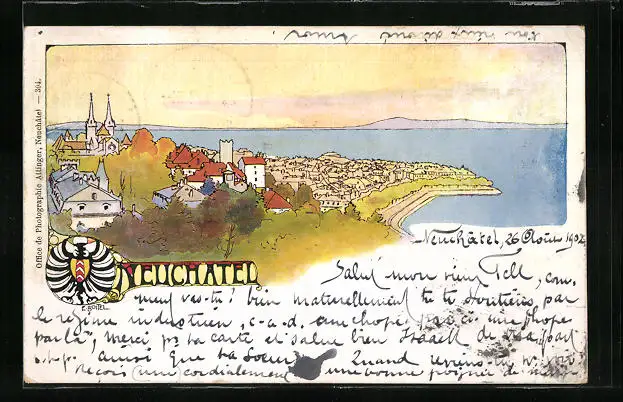 Office de Photographie Attinger, Neuchâtel — 304.
NEUCHÂTEL
E. BOITEL
Neuchâtel, 26 Août 1902
Salut mon vieux Tell, com-
ment vas-tu? bien naturellement tu te soutiens, par
le régime industriel, c-a-d. une chope par ci, une chope
par là, merci pr ta carte et salue bien de ma part
ainsi que ta soeur. Quand reviens-tu
Reçois une cordialement une bonne poignée de